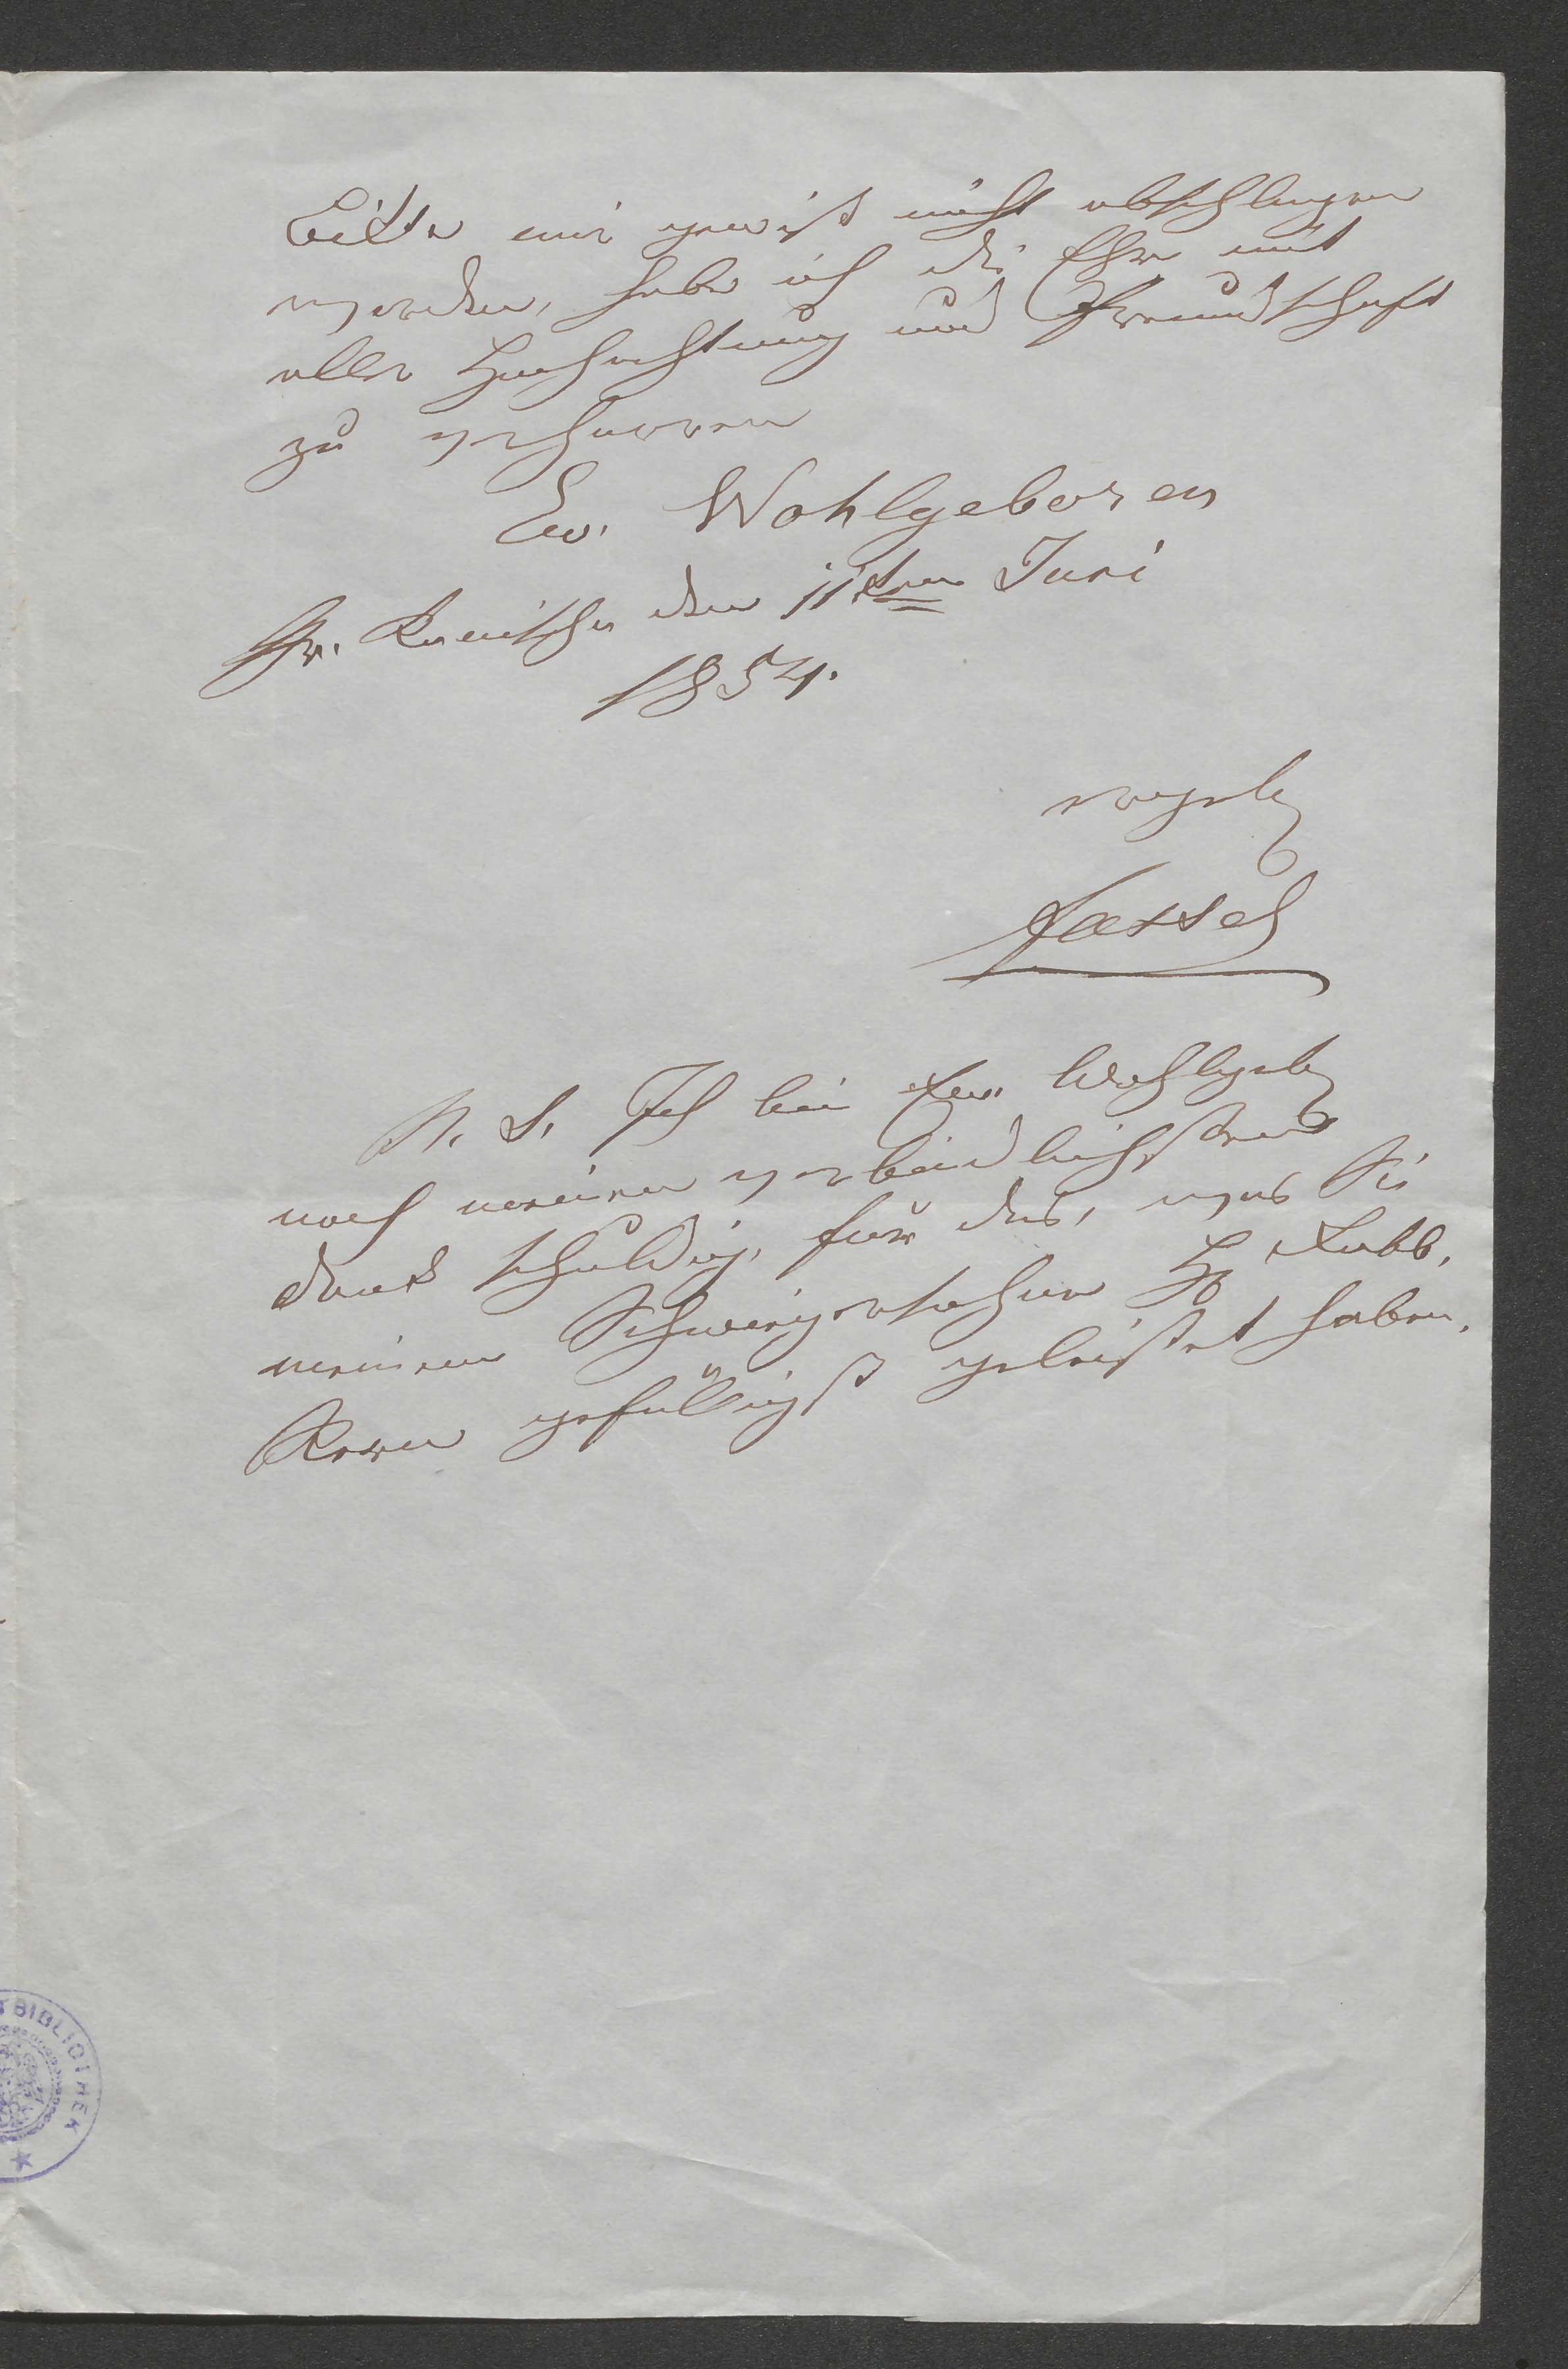 Bitte mir gewiß nicht abschlagen
werden, habe ich die Ehre mit
aller Hochachtung und Freundschaft
zu verharren
Ew. Wohlgeboren
Gr. Kanischa den 11ten Juni
1854.
ergeb
Fassel
N. S. Ich bin Euer Wohlgeb
noch meinen verbindlichsten
Dank schuldig, für das, was Sie
meinem Schwiegersohne H Rabb.
gefälligst geleistet haben.
BIBLIOTHEK